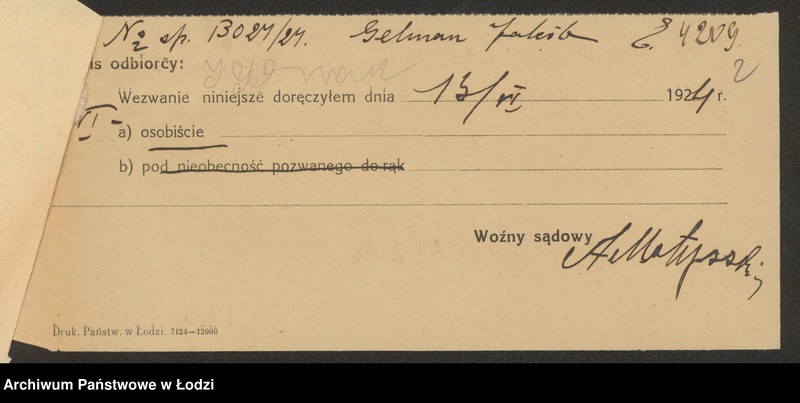 № sp. BO 27/24. Gelman Jakób E. 4209
is odbiorcy:
2
Wezwanie niniejsze doręczyłem dnia 13/VI 1924 r.
II a) osobiście
b) pod nieobecność pozwanego do rąk
Woźny sądowy
Druk. Państw. w Łodzi. 7124—12000
Archiwum Państwowe w Łodzi